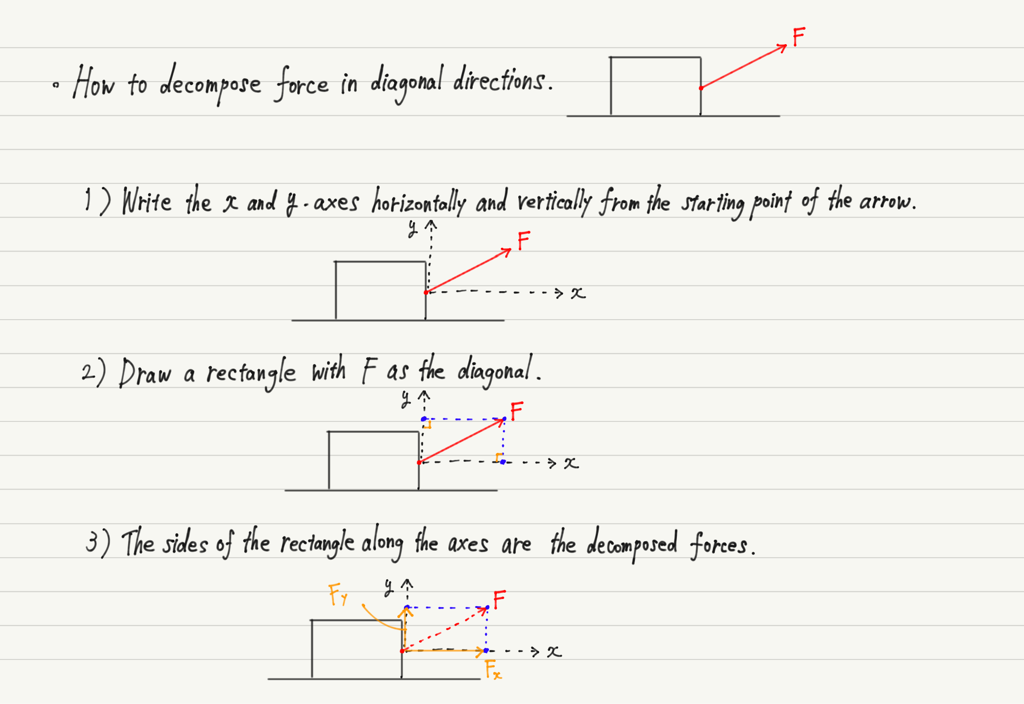 • How to decompose force in diagonal directions.
F
1) Write the x and y-axes horizontally and vertically from the starting point of the arrow.
y
F
x
2) Draw a rectangle with F as the diagonal.
y
F
x
3) The sides of the rectangle along the axes are the decomposed forces.
Fy
y
F
x
Fx